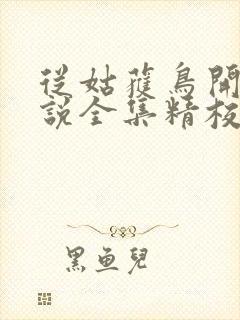 從姑蘿鳥開
說全集精校
黑魚兒